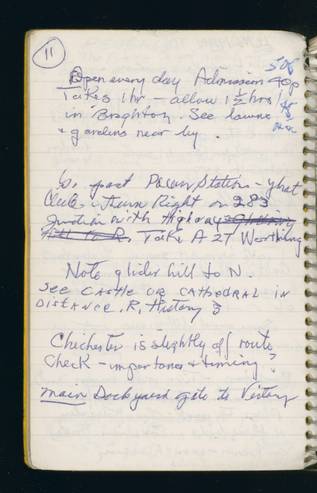 11
Open every day Admission 40p 50p
Takes 1 hr – allow 1½ hrs
in Brighton. See lawns
+ gardens near by.
Go past Station – yhat
Club – turn Right on 283
Junction with Highway
Take A 27 Worthing
Note glider hill to N.
SEE CASTLE OR CATHEDRAL IN
DISTANCE, R, History?
Chichester is slightly off route
Check – importance + timing?
Main Dockyard gate to Victory